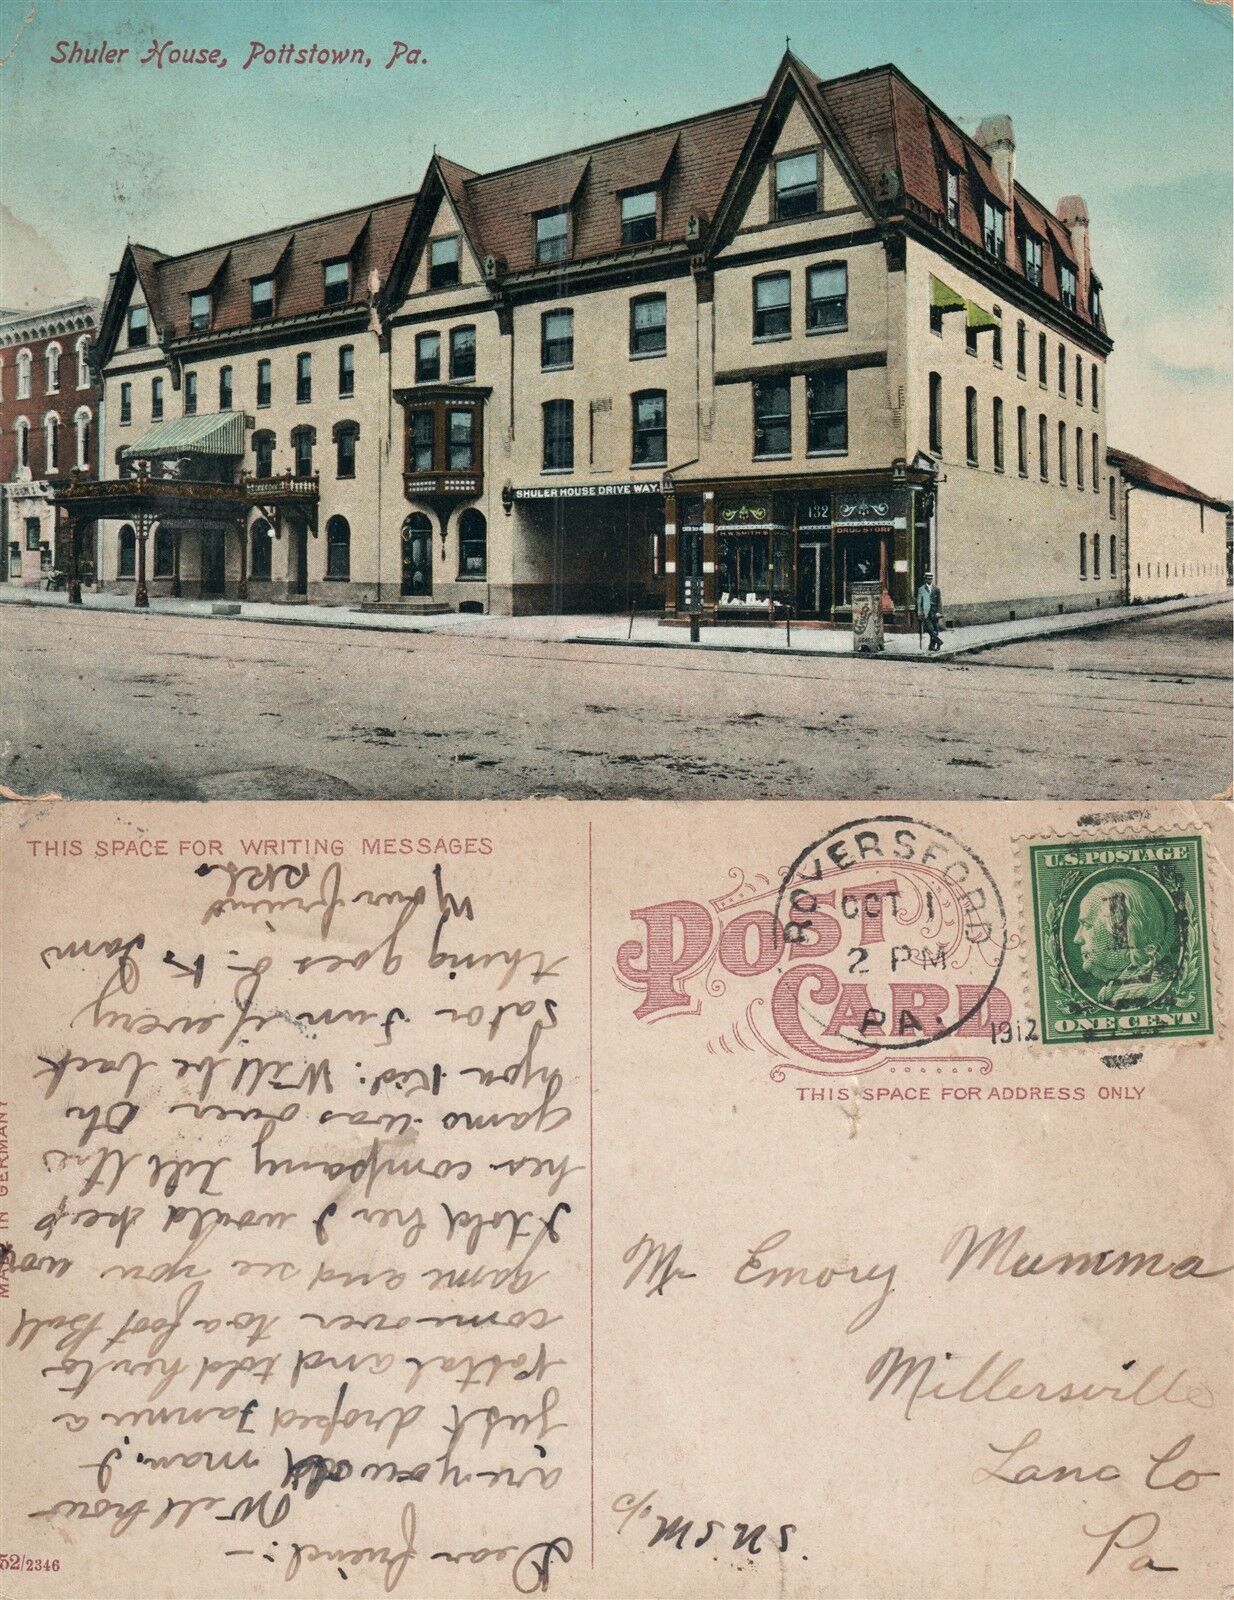 Shuler House, Pottstown, Pa.
SHULER HOUSE DRIVE WAY.
132
H.W. SMITH
DRUG STORE
THIS SPACE FOR WRITING MESSAGES
Dear friend:-
Well how
are you old man. I
just droped Fannie a
Postal and told her to
come over to a foot Ball
game and see you
I told her I would keep
her company till the
game was over Oh
you Kid: Will be back
Sator Sun if every
thing goes O. K.
Your friend
MADE IN GERMANY
52/2346
POST CARD
ROYERSFORD
OCT 1
2 PM
PA.
1912
U.S. POSTAGE
1
ONE CENT
THIS SPACE FOR ADDRESS ONLY
Mr Emory Mumma
Millersville
Lanc Co
Pa
c/o